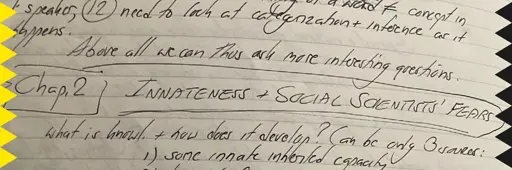 of a word ≠ concept in
speaker, (12) need to look at categorization + inference as it
happens.
Above all we can thus ask more interesting questions.
Chap. 2 INNATENESS + SOCIAL SCIENTISTS' FEARS
What is knowl. + how does it develop? Can be only 3 sources:
1) some innate inherited capacity